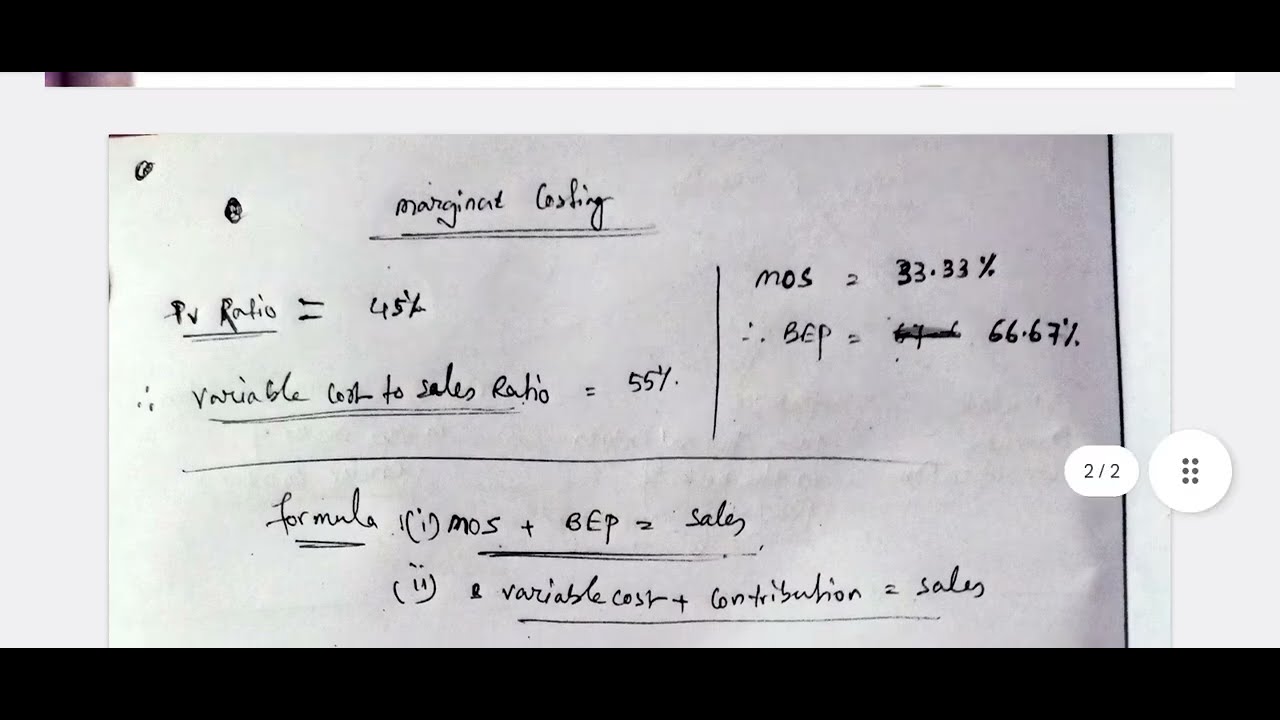 marginal Costing
PV Ratio = 45%
∴ variable cost to sales Ratio = 55%.
MOS = 33.33%
∴ BEP = 66.67%
formula (i) MOS + BEP = sales
(ii) variable cost + contribution = sales
2 / 2